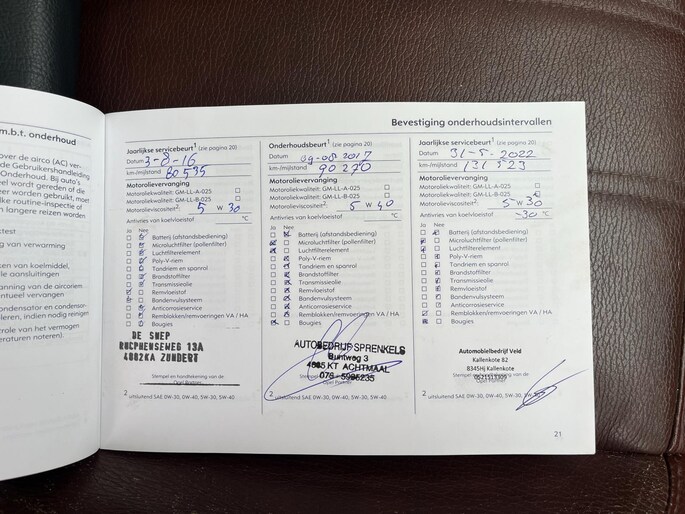 m.b.t. onderhoud
over de airco (AC) ver-
de Gebruikershandleiding
Onderhoud. Bij auto's
eel wordt gereden of die
er worden gebruikt, moet
lke routine-inspectie of
n langere reizen worden
test
ng van verwarming
ken van koelmiddel,
ile aansluitingen
anning van de aircoriem
entueel vervangen
ondensator en condensor-
leren, indien nodig reinigen
trole van het vermogen
eraturen noteren).
Bevestiging onderhoudsintervallen
Jaarlijkse servicebeurt1 (zie pagina 20)
Datum 3-8-16
km-/mijlstand 80535
Motorolievervanging
Motoroliekwaliteit: GM-LL-A-025
Motoroliekwaliteit: GM-LL-B-025
Motorolieviscositeit2: 5 W 30
Antivries van koelvloeistof °C
Ja Nee
Batterij (afstandsbediening)
Microluchtfilter (pollenfilter)
Luchtfilterelement
Poly-V-riem
Tandriem en spanrol
Brandstoffilter
Transmissieolie
Remvloeistof
Bandenvulsysteem
Anticorrosieservice
Remblokken/remvoeringen VA / HA
Bougies
DE SNEP
RUCPHENSEWEG 13A
4882KA ZUNDERT
Stempel en handtekening van de
Opel Partner
2 uitsluitend SAE 0W-30, 0W-40, 5W-30, 5W-40
Onderhoudsbeurt1 (zie pagina 20)
Datum 09-08-2017
km-/mijlstand 90270
Motorolievervanging
Motoroliekwaliteit: GM-LL-A-025
Motoroliekwaliteit: GM-LL-B-025
Motorolieviscositeit2: 5 W 40
Antivries van koelvloeistof °C
Ja Nee
Batterij (afstandsbediening)
Microluchtfilter (pollenfilter)
Luchtfilterelement
Poly-V-riem
Tandriem en spanrol
Brandstoffilter
Transmissieolie
Remvloeistof
Bandenvulsysteem
Anticorrosieservice
Remblokken/remvoeringen VA / HA
Bougies
AUTOBEDRIJF SPRENKELS
Buntweg 3
4885 KT ACHTMAAL
076 - 5986235
Stempel en handtekening van de
Opel Partner
2 uitsluitend SAE 0W-30, 0W-40, 5W-30, 5W-40
Jaarlijkse servicebeurt1 (zie pagina 20)
Datum 31-5-2022
km-/mijlstand 131523
Motorolievervanging
Motoroliekwaliteit: GM-LL-A-025
Motoroliekwaliteit: GM-LL-B-025
Motorolieviscositeit2: 5 W 30
Antivries van koelvloeistof -30 °C
Ja Nee
Batterij (afstandsbediening)
Microluchtfilter (pollenfilter)
Luchtfilterelement
Poly-V-riem
Tandriem en spanrol
Brandstoffilter
Transmissieolie
Remvloeistof
Bandenvulsysteem
Anticorrosieservice
Remblokken/remvoeringen VA / HA
Bougies
Automobielbedrijf Veld
Kallenkote 82
8345HJ Kallenkote
Stempel en handtekening van de
Opel Partner
2 uitsluitend SAE 0W-30, 0W-40, 5W-30, 5W-40
21